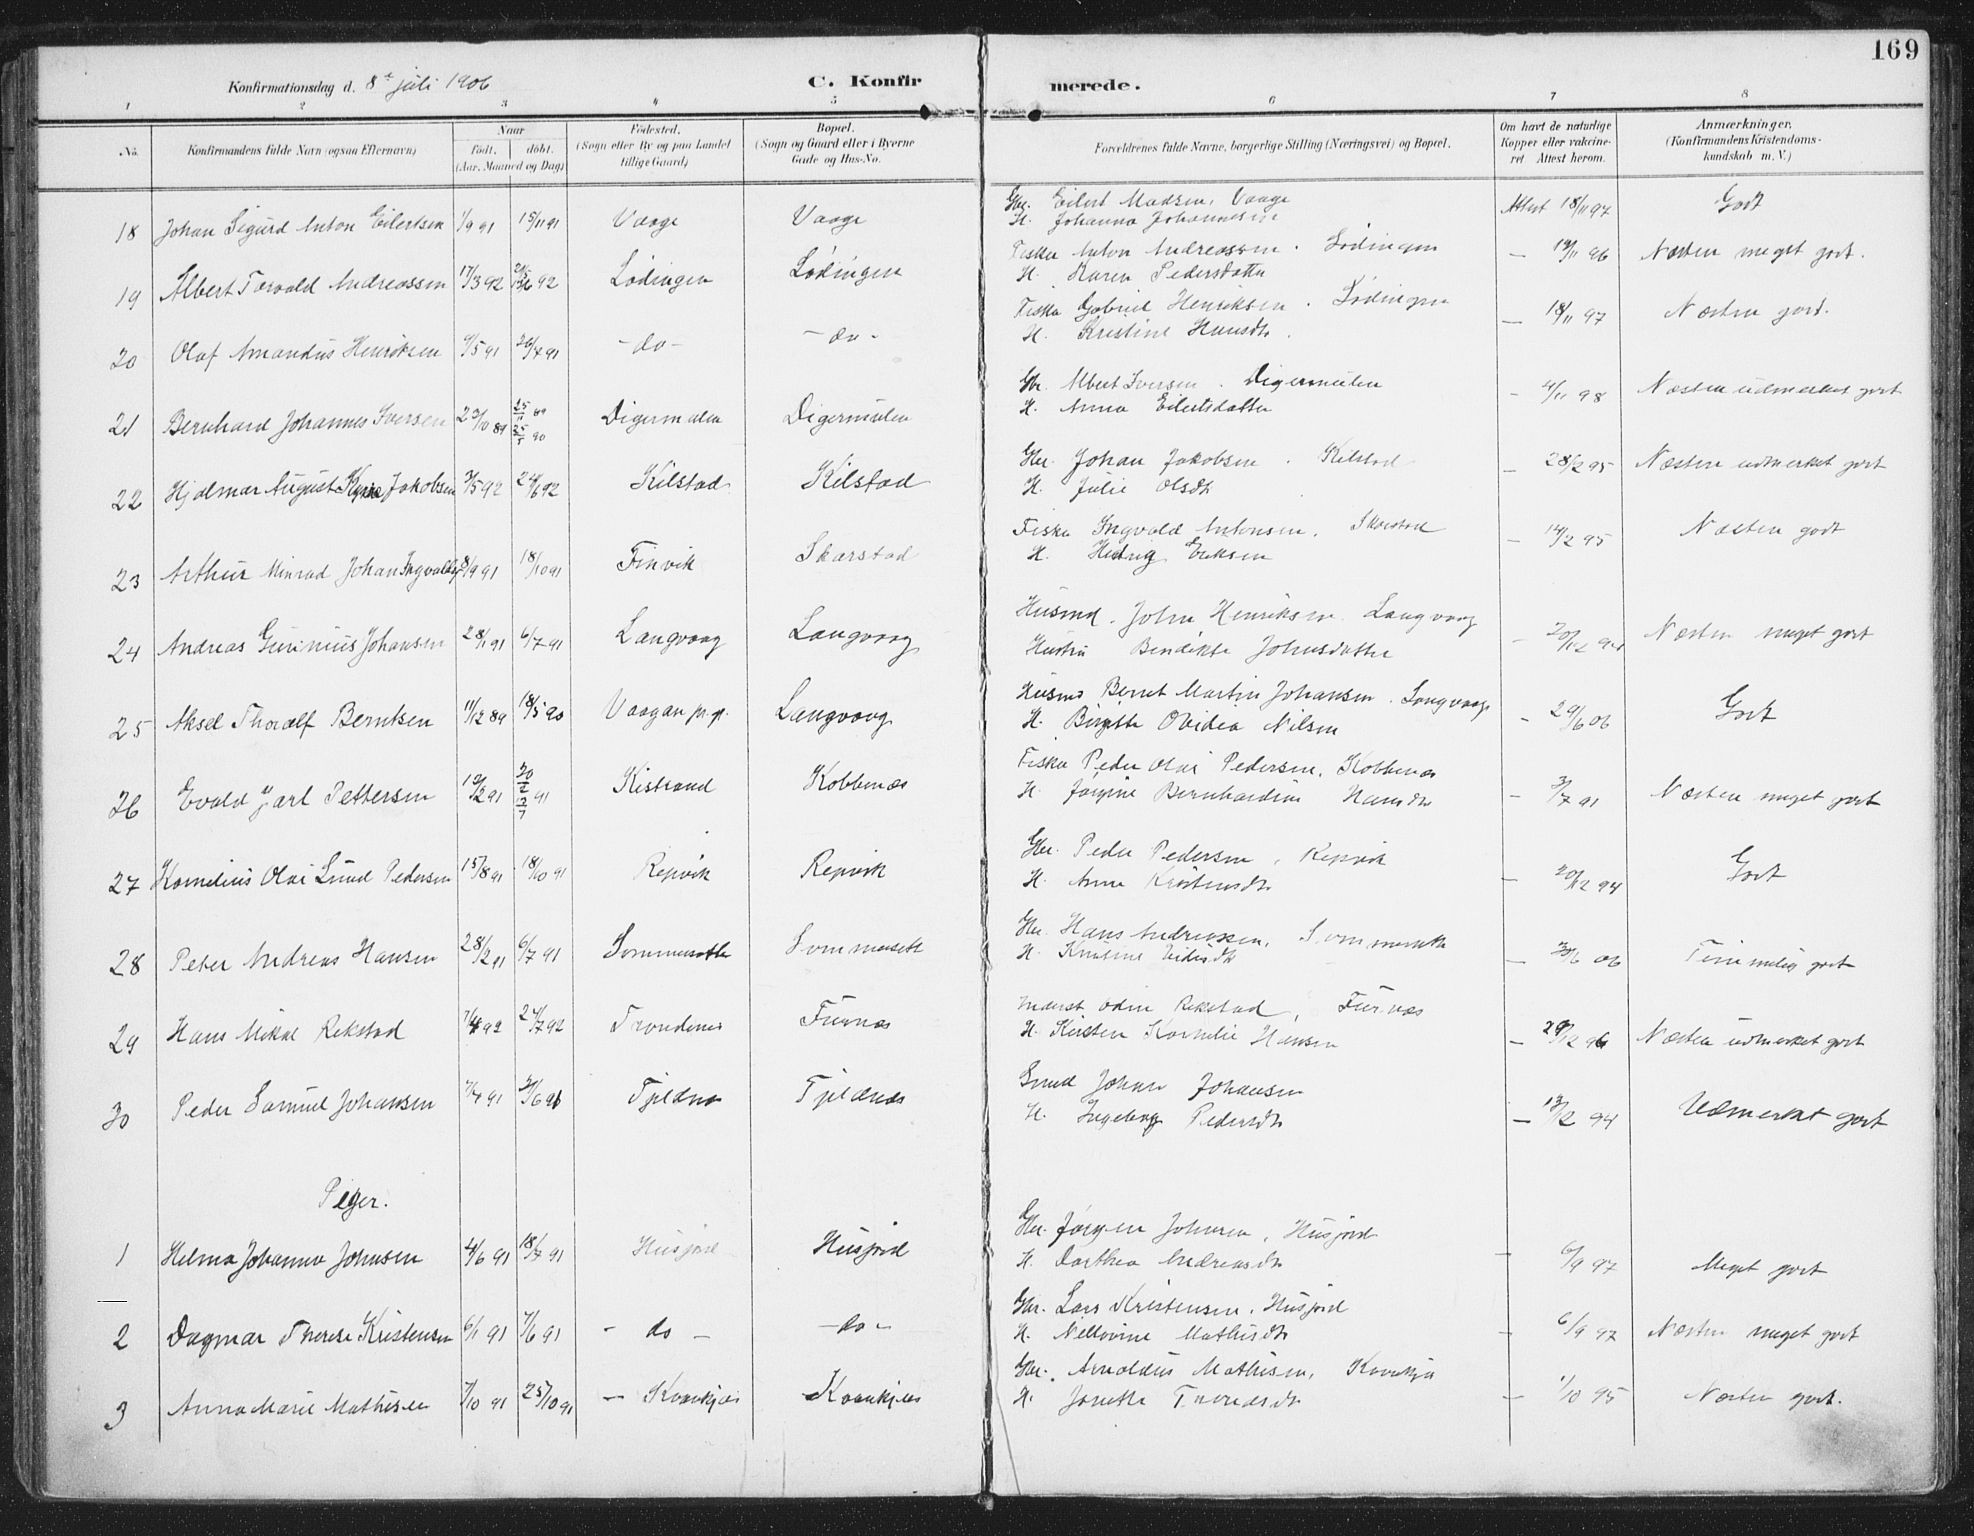 169
Konfirmationsdag d. 8de juli 1906
C. Konfirmerede.
1 2 3 4 5 6 7 8
No. Konfirmandens fulde Navn (ogsaa Efternavn) Naar födt. döbt. (Aar, Maaned og Dag) Födested. (Sogn eller By og paa Landet tillige Gaard) Bopæl. (Sogn og Gaard eller i Byerne Gade og Hus-No. Forældrenes fulde Navne, borgerlige Stilling (Næringsvei) og Bopæl. Om havt de naturlige Kopper eller vakcineret Attest herom. Anmærkninger. (Konfirmandens Kristendomskundskab m. V.)
18 Johan Sigurd Anton Eilertsen 1/9 91 15/11 91 Vaage Vaage Gbr. Eilert Madsen, Vaage Attest 18/11 97 Godt
H. Johanna Johannesdt
19 Albert Torvald Andreassen 17/3 92 92 Lødingen Lødingen Fisker Anton Andreassen. Lødingen — 19/11 96 Næsten meget godt.
H. Karen Pedersdatter
20 Olaf Amandus Henriksen 9/5 91 20/7 91 -do- -do- Fisker Gabriel Henriksen. Lødingen — 18/11 97 Næsten godt.
H. Kristine Hansdt.
21 Bernhard Johannes Iversen 23/10 89 25/11 89 25/5 90 Digermulen Digermulen Gbr. Albert Iversen. Digermulen - 4/11 98 Næsten udmerket godt
H. Anna Eilertsdatter
22 Hjalmar August Jakobsen 3/5 92 24/6 92 Kilstad Kilstad Gbr. Johan Jakobsen. Kilstad — 28/2 95 Næsten udmerket godt
H. Julie Olsdt
23 Arthur Minrad Johan Ingvaldsen 8/9 91 18/10 91 Finvik Skarstad Fisker Ingvald Antonsen. Skarstad — 14/2 95 Næsten godt
H. Hedvig Eriksen
24 Andreas Gurinius Johansen 28/1 91 6/7 91 Langvaag Langvaag Husmd. John Henriksen Langvaag — 20/12 94 Næsten meget godt
Hustru Bendikte Johnsdatter
25 Aksel Thoralf Berntsen 11/12 89 18/5 90 Vaagan pr.gj. Langvaag Husmd Bernt Martin Johansen. Langvaag — 29/6 06 Godt
H. Birgitte Ovidea Nilsen
26 Evald Jarl Pettersen 19/2 91 91 Kistrand Kobbenæs Fisker Peder Olai Pedersen, Kobbenæs — 3/7 91 Næsten meget godt
H. Jørgine Bernhardine Hansdt
27 Kornelius Olai Lund Pedersen 15/8 91 18/10 91 Repvik Repvik Gbr. Peder Pedersen, Repvik — 20/12 94 Godt
H. Anne Kristensdt
28 Peter Andreas Hansen 28/2 91 6/7 91 Sommersette Sommersett Gbr. Hans Andreassen, Sommersette — 30/6 06 Temmelig godt
H. Kristine
29 Hans Mikal Rekstad 7/4 92 24/7 92 Trondenes Furnæs Odin Rekstad, Furnæs — 29/12 96 Næsten udmerket godt
H. Kirsten Kornelie Hansen
30 Peder Samuel Johansen 7/4 91 Tjeldnæs Tjeldnæs Johan Johansen — 13/12 94 Udmerket godt
H. Ingeborg Pedersdt
Piger.
1 Helma Johanna Johnsen 4/6 91 18/7 91 Husjord Husjord Gbr. Jørgen Johnsen, Husjord — 6/9 97 Meget godt
H. Dorthea Andreasdt
2 Dagmar Therese Kristensen 6/1 91 7/6 91 - do - - do - Gbr. Lars Kristensen. Husjord - 6/9 97 Næsten meget godt
H. Nellovine Mathisdt
3 Anna Marie Mathisen 7/10 91 25/10 91 — Kvankjæs Kvankjæs Gbr. Arnoldus Mathisen, — 1/10 95 Næsten godt.
H. Jonette